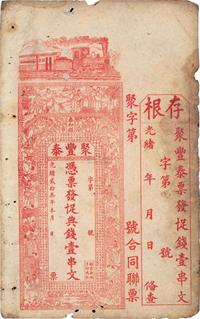 存根
聚豐泰票發足典錢壹串文
字第 號
光緒 年 月 日 俻查
聚字第 號合同聯票
聚豐泰
字第 號
憑票發足典錢壹串文
光緒貳拾三年 月 日
票